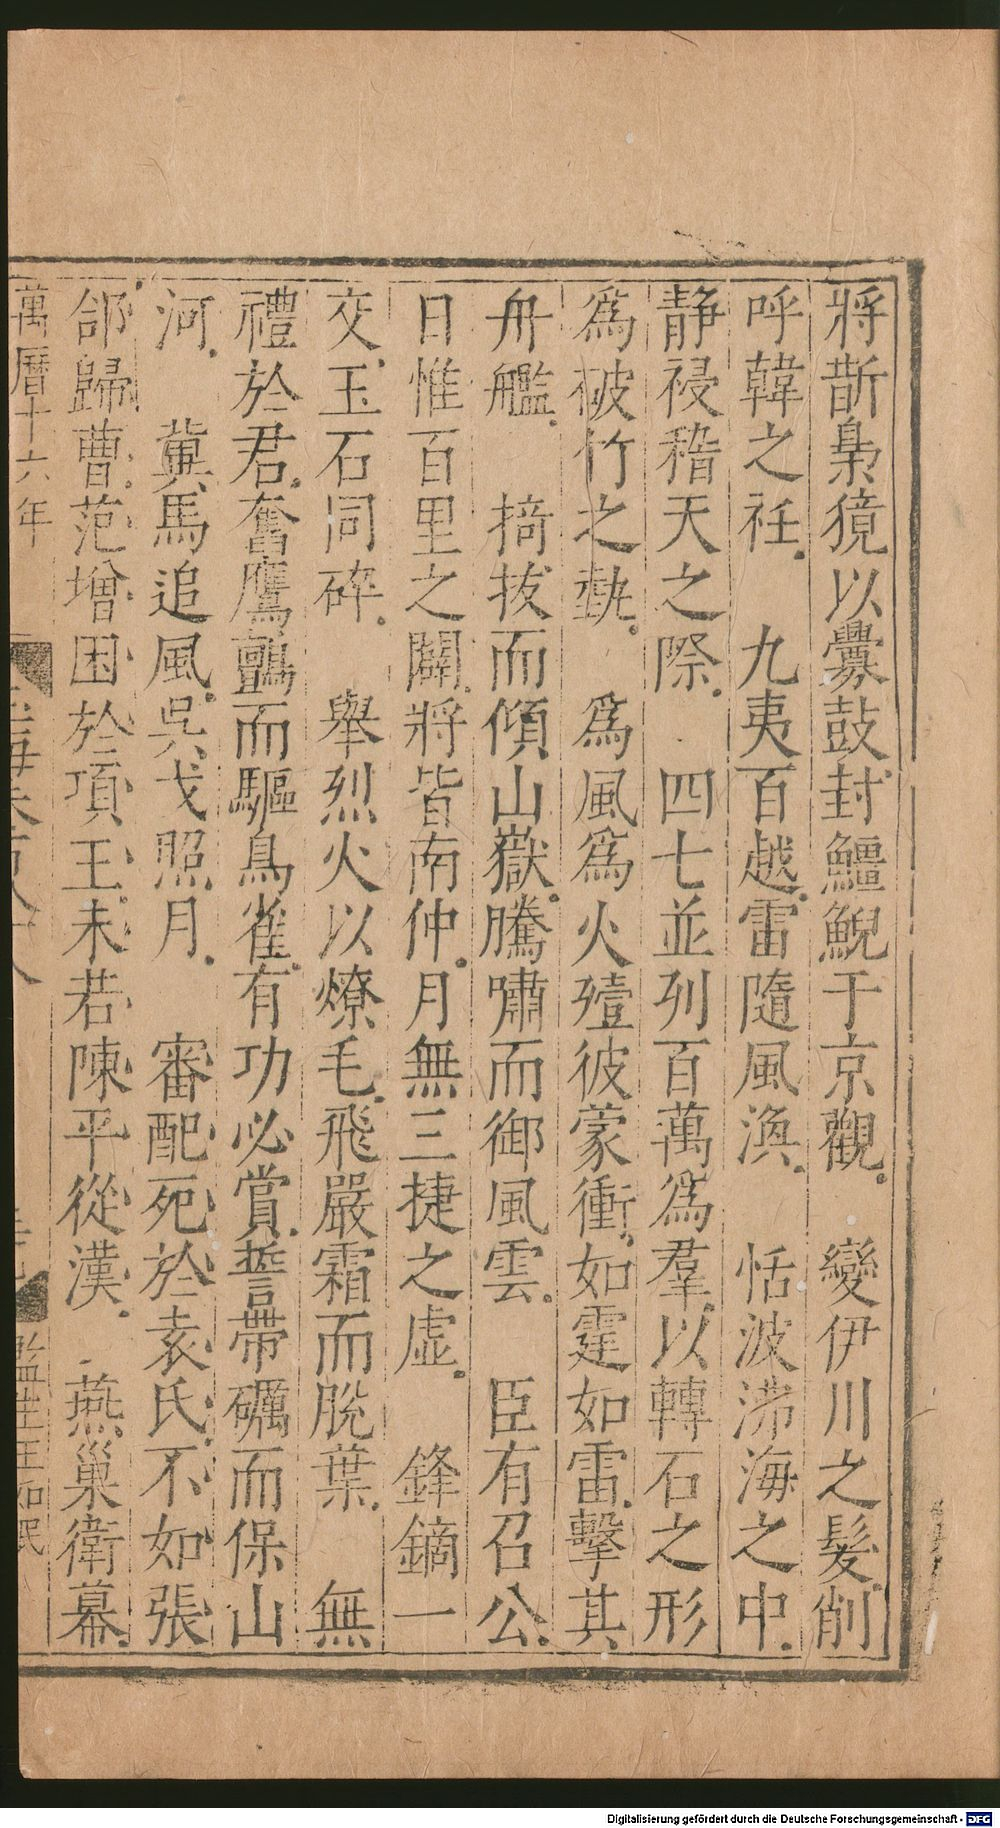 將斮梟獍以釁鼓封鱷鯢于京觀　變伊川之髮削
呼韓之衽　九夷百越雷隨風渙　恬波沸海之中
靜祲稽天之際　四七並列百萬爲羣以轉石之形
爲破竹之埶　爲風爲火殪彼蒙衝如霆如雷擊其
舟艦　掎拔而傾山嶽騰嘯而御風雲　臣有召公
日惟百里之闢將皆南仲月無三捷之虛　鋒鏑一
交玉石同碎　舉烈火以燎毛飛嚴霜而脫葉　無
禮於君奮鷹鸇而驅鳥雀有功必賞誓帶礪而保山
河　冀馬追風吳戈照月　審配死於袁氏不如張
郃歸曹范增困於項王未若陳平從漢　燕巢衛幕
萬曆十六年
玉海卷
監生王
Digitalisierung gefördert durch die Deutsche Forschungsgemeinschaft - DFG